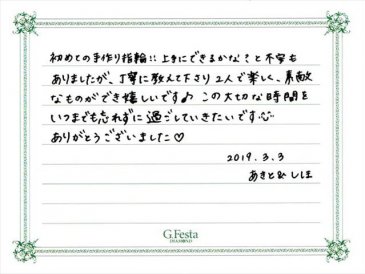 初めての手作り指輪!! 上手にできるかな?と不安も
ありましたが、丁寧に教えて下さり2人で楽しく、素敵
なものができ嬉しいです♪ この大切な時間を
いつまでも忘れずに過ごしていきたいです
ありがとうございました♡
2019.3.3
あきと&しほ
G.Festa
DIAMOND